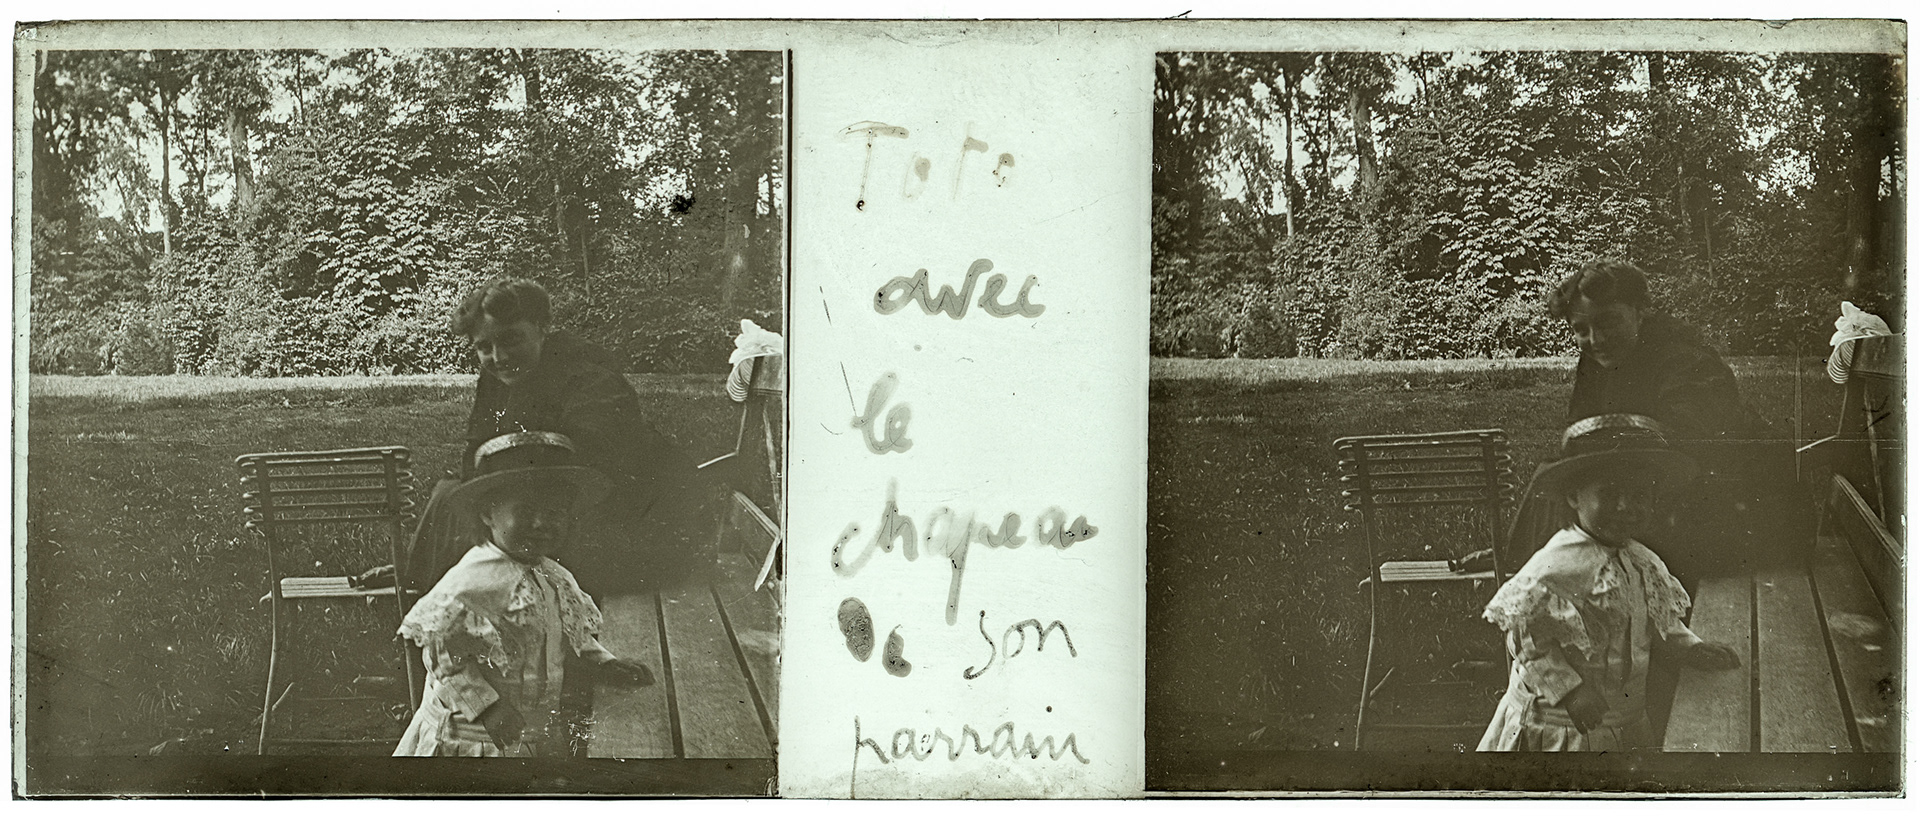 Toto
avec
le
chapeau
de son
parrain